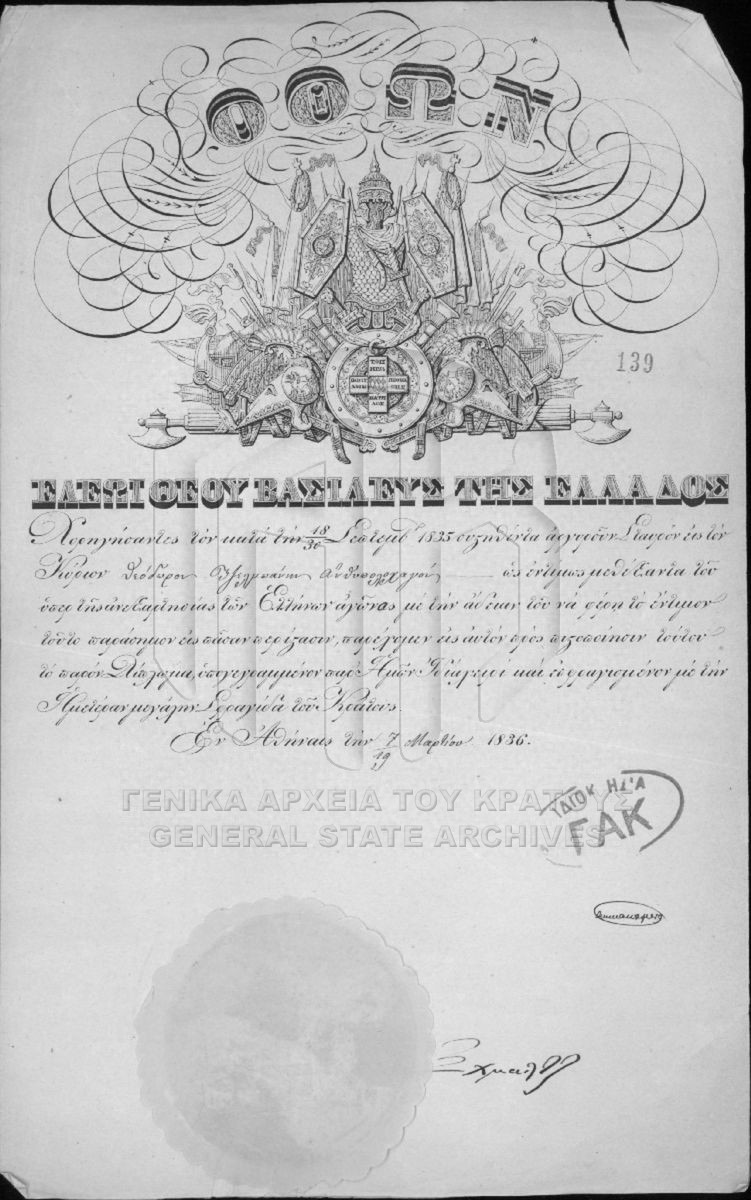 ΟΘΩΝ
ΤΟΙΣ ΗΡΩΣΙ ΠΡΟΜΑΧΟΙΣ ΠΑΤΡΙΔΟΣ
139
ΕΛΕΩΙ ΘΕΟΥ ΒΑΣΙΛΕΥΣ ΤΗΣ ΕΛΛΑΔΟΣ
Χορηγήσαντες τὸν κατὰ τὴν 18/30 Σεπτεμβ 1835 συστηθέντα ἀργυροῦν Σταυρὸν εἰς τὸν
Κύριον Θεόδωρον Ἀνθυπολοχαγὸν ὡς ἐντίμως μεθέξαντα τοῦ
ὑπὲρ τῆς ἀνεξαρτησίας τῶν Ἑλλήνων ἀγῶνος μὲ τὴν ἄδειαν τοῦ νὰ φέρῃ τὸ ἔντιμον
τοῦτο παράσημον εἰς πᾶσαν περίστασιν, παρέχομεν εἰς αὐτὸν πρὸς πιστοποίησιν τούτου
τὸ παρὸν Δίπλωμα, ὑπογεγραμμένον παρ' Ἡμῶν Ἰδιοχείρως καὶ ἐσφραγισμένον μὲ τὴν
Ἡμετέραν μεγάλην Σφραγίδα τοῦ Κράτους.
Ἐν Ἀθήναις τὴν 7/19 Μαρτίου 1836.
ΓΕΝΙΚΑ ΑΡΧΕΙΑ ΤΟΥ ΚΡΑΤΟΥΣ
GENERAL STATE ARCHIVES
ΓΑΚ